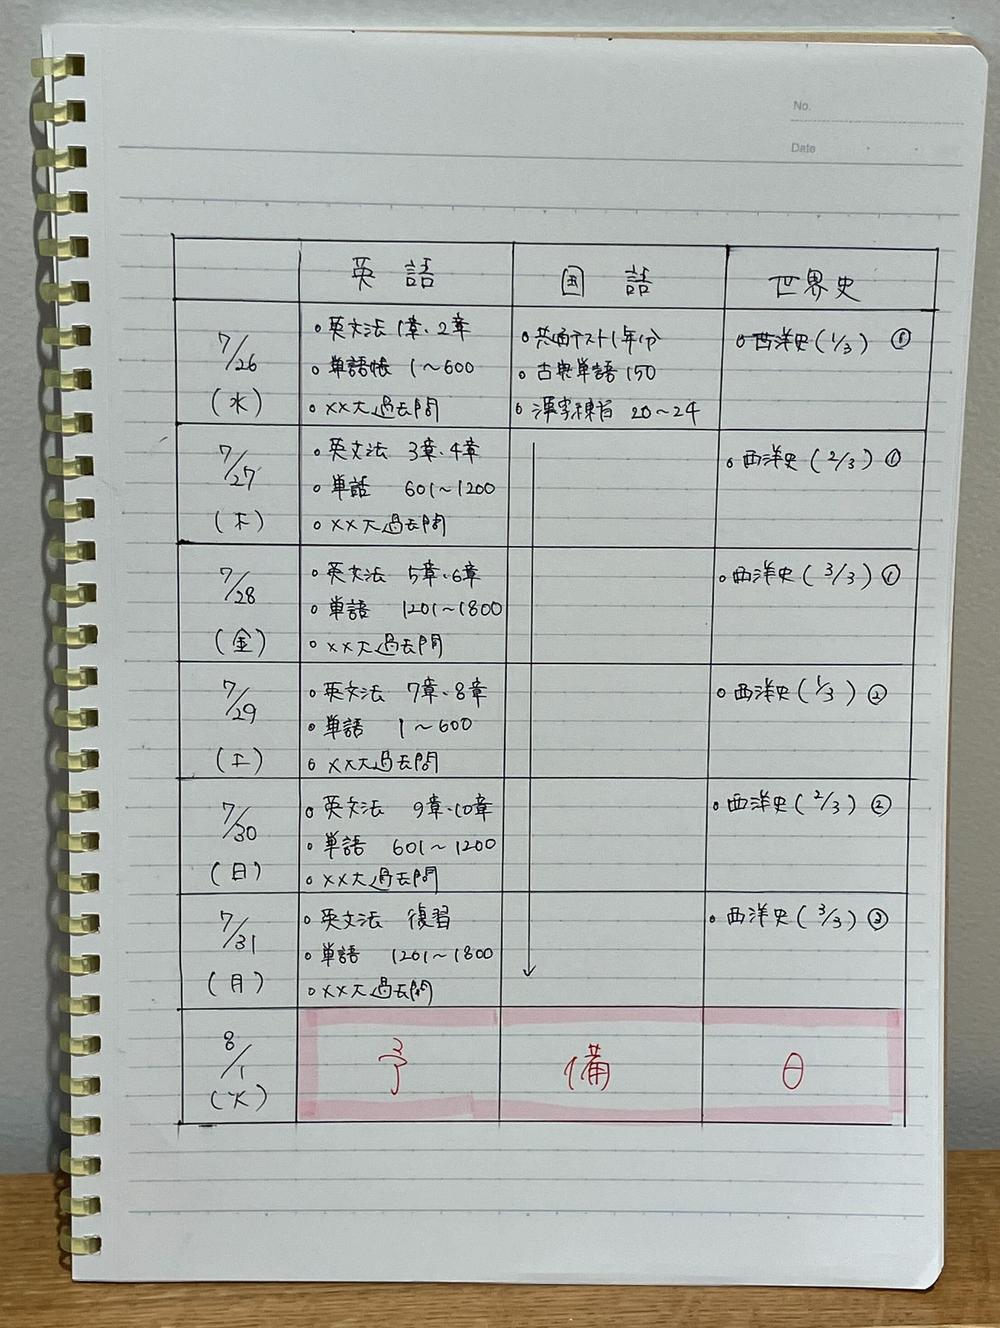 No.
Date
英語 国語 世界史
7/26 (水)
・英文法 1章・2章
・単語帳 1～600
・××大過去問
・共通テスト1年分
・古典単語 150
・漢字練習 20～24
・西洋史(1/3) ①
7/27 (木)
・英文法 3章・4章
・単語 601～1200
・××大過去問
・西洋史(2/3) ①
7/28 (金)
・英文法 5章・6章
・単語 1201～1800
・××大過去問
・西洋史(3/3) ①
7/29 (土)
・英文法 7章・8章
・単語 1～600
・××大過去問
・西洋史(1/3) ②
7/30 (日)
・英文法 9章・10章
・単語 601～1200
・××大過去問
・西洋史(2/3) ②
7/31 (月)
・英文法 復習
・単語 1201～1800
・××大過去問
・西洋史(3/3) ③
8/1 (火)
予備日